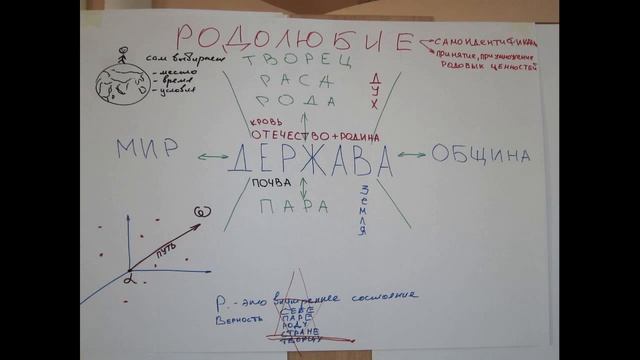 РОДОЛЮБИЕ
САМОИДЕНТИФИКАЦ
ПРИНЯТИЕ, ПРИУМНОЖЕНИЕ
РОДОВЫХ ЦЕННОСТЕЙ
сам выбирает
- место
- время
- условия
ТВОРЕЦ
РАСА
РОДА
ДУХ
КРОВЬ
ОТЕЧЕСТВО + РОДИНА
МИР
ДЕРЖАВА
ОБЩИНА
ПОЧВА
ПАРА
ЗЕМЛЯ
ПУТЬ
α
ω
Р. - это внутреннее состояние
ВЕРНОСТЬ
СЕБЕ
ПАРЕ
РОДУ
СТРАНЕ
ТВОРЦУ